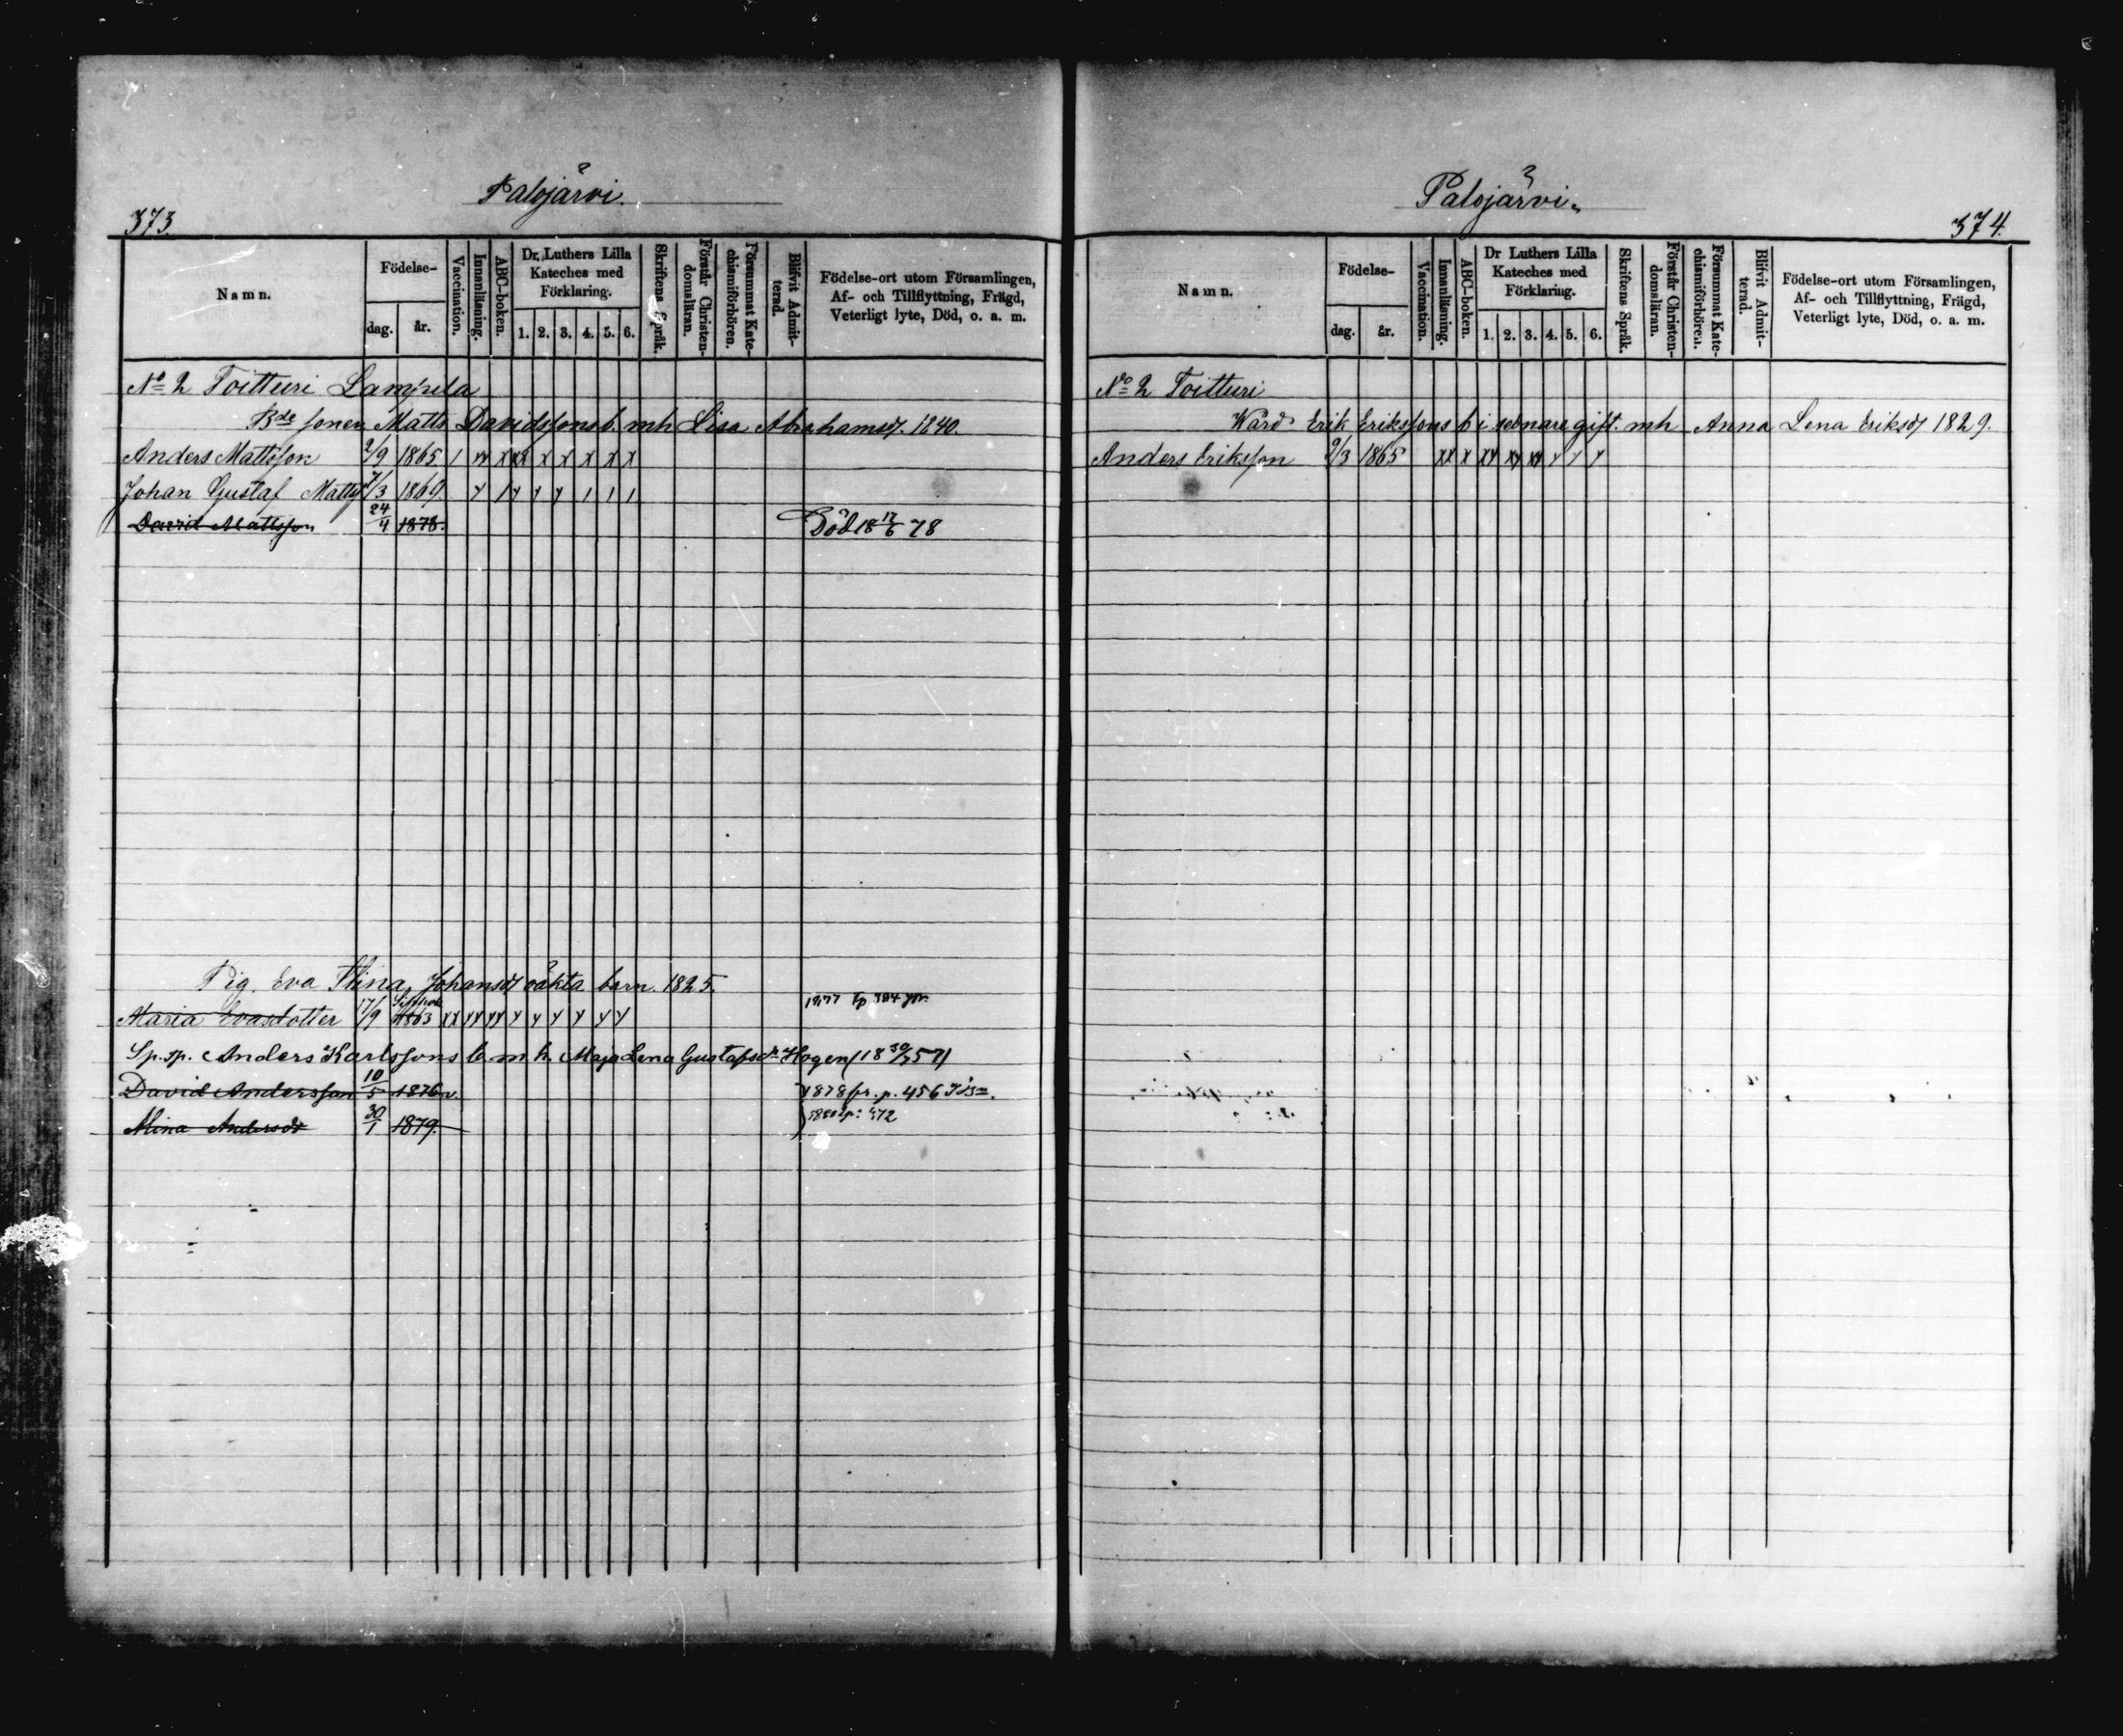 373.
Palojärvi.
Namn.
Födelse-
dag. år.
Vaccination.
Innanläsning.
ABC-boken.
Dr. Luthers Lilla Kateches med Förklaring.
1. 2. 3. 4. 5. 6.
Skriftens Språk.
Förstår Christen-domsläran.
Försummat Kate-chismiförhören.
Blifvit Admit-terad.
Födelse-ort utom Församlingen,
Af- och Tillflyttning, Frägd,
Veterligt lyte, Död, o. a. m.
No 2 Toitturi Lampila
Bde sonen Matts Davidssons b. mh Lisa Abrahamsdr. 1840.
Anders Mattsson 2/9 1865 1 xx x xx x x x x x
Johan Gustaf Mattss 4/3 1869. y 1 y y y 1 1 1
David Mattsson 24/4 1878. Död 18 17/6 78
Pig. Eva Stina Johansdr oäkta barn. 1825.
Maria Evasdotter 17/9 1863 xx xx xx y y y y y y 1877 Tp 384
Sp. sp. Anders Karlssons b. m. h. Maja Lena Gustafsdr Hogen (18 30/7 57)
David Andersson 10/5 1876 v. 1878 fr. p. 456
Mina Andersdr 30/1 1879. 1880 p: 472
374.
Palojärvi.
Namn.
Födelse-
dag. år.
Vaccination.
Innanläsning.
ABC-boken.
Dr Luthers Lilla Kateches med Förklaring.
1. 2. 3. 4. 5. 6.
Skriftens Språk.
Förstår Christen-domsläran.
Försummat Kate-chismiförhören.
Blifvit Admit-terad.
Födelse-ort utom Församlingen,
Af- och Tillflyttning, Frägd,
Veterligt lyte, Död, o. a. m.
No 2 Toitturi
Wärd Erik Erikssons b i sednare gift. mh Anna Lena Eriksdr 1829.
Anders Eriksson 9/3 1865 xx x xy xy xy y y y